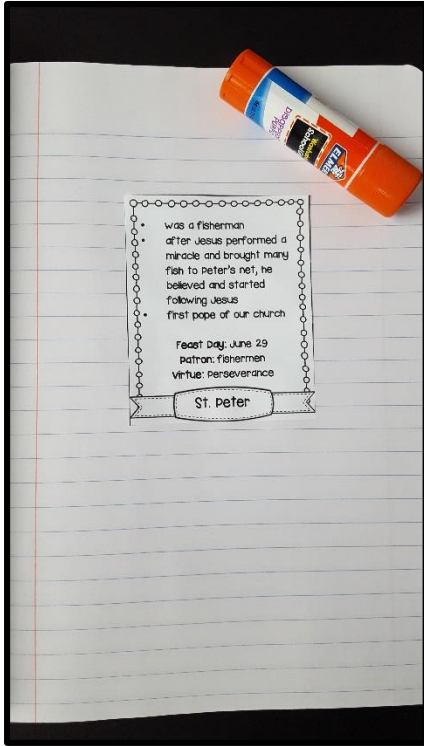 Disappearing
Purple
Washable
School Glue
ELMER'S
• was a fisherman
• after Jesus performed a
miracle and brought many
fish to Peter's net, he
believed and started
following Jesus
• first pope of our church
Feast Day: June 29
Patron: fishermen
Virtue: Perseverance
St. Peter